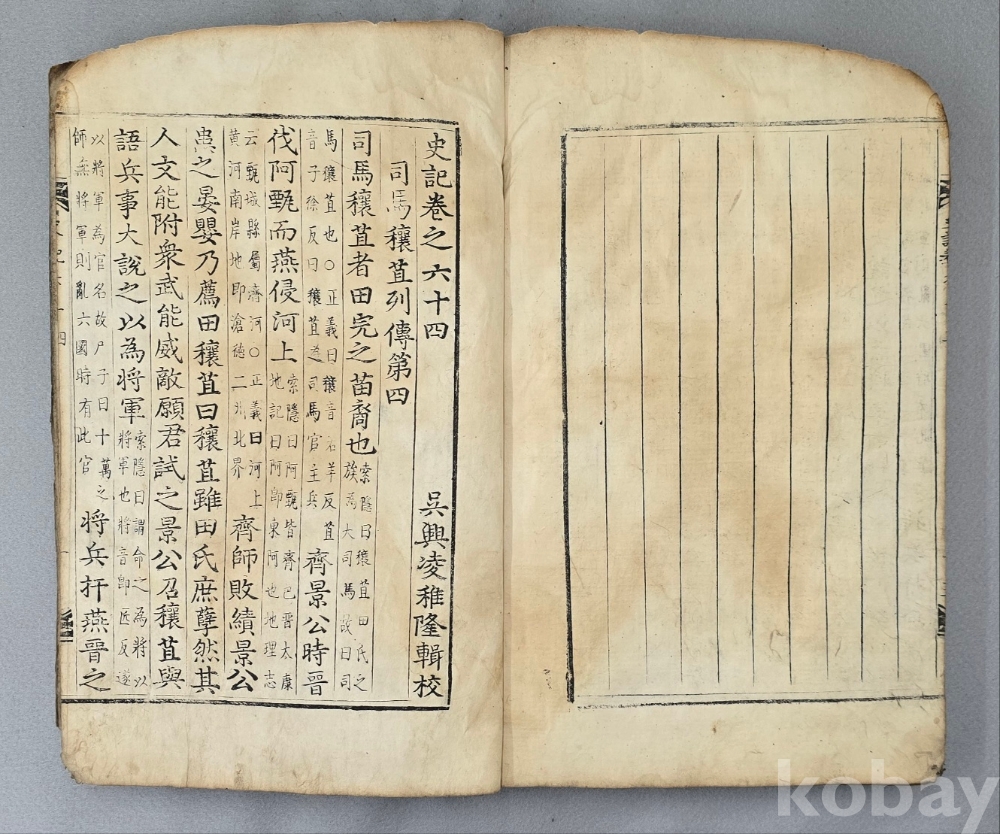 史記卷之六十四 吳興凌稚隆輯校
司馬穰苴列傳第四
司馬穰苴者田完之苗裔也 索隱曰穰苴田氏之族為大司馬故曰司
馬穰苴也○正義曰穰音若羊反苴音子徐反曰穰苴為司馬官主兵 齊景公時晉
伐阿甄而燕侵河上 索隱曰阿甄皆齊邑晉太康地記曰阿即東阿也地理志
云甄城縣屬濟河○正義曰河上黃河南岸地即滄德二州北界 齊師敗績景公
患之晏嬰乃薦田穰苴曰穰苴雖田氏庶孽然其
人文能附衆武能威敵願君試之景公召穰苴與
語兵事大說之以為將軍 索隱曰謂命之為將以將軍也將音即匠反遂
以將軍為官名故尸子曰十萬之師無將軍則亂六國時有此官 將兵扞燕晉之
kobay